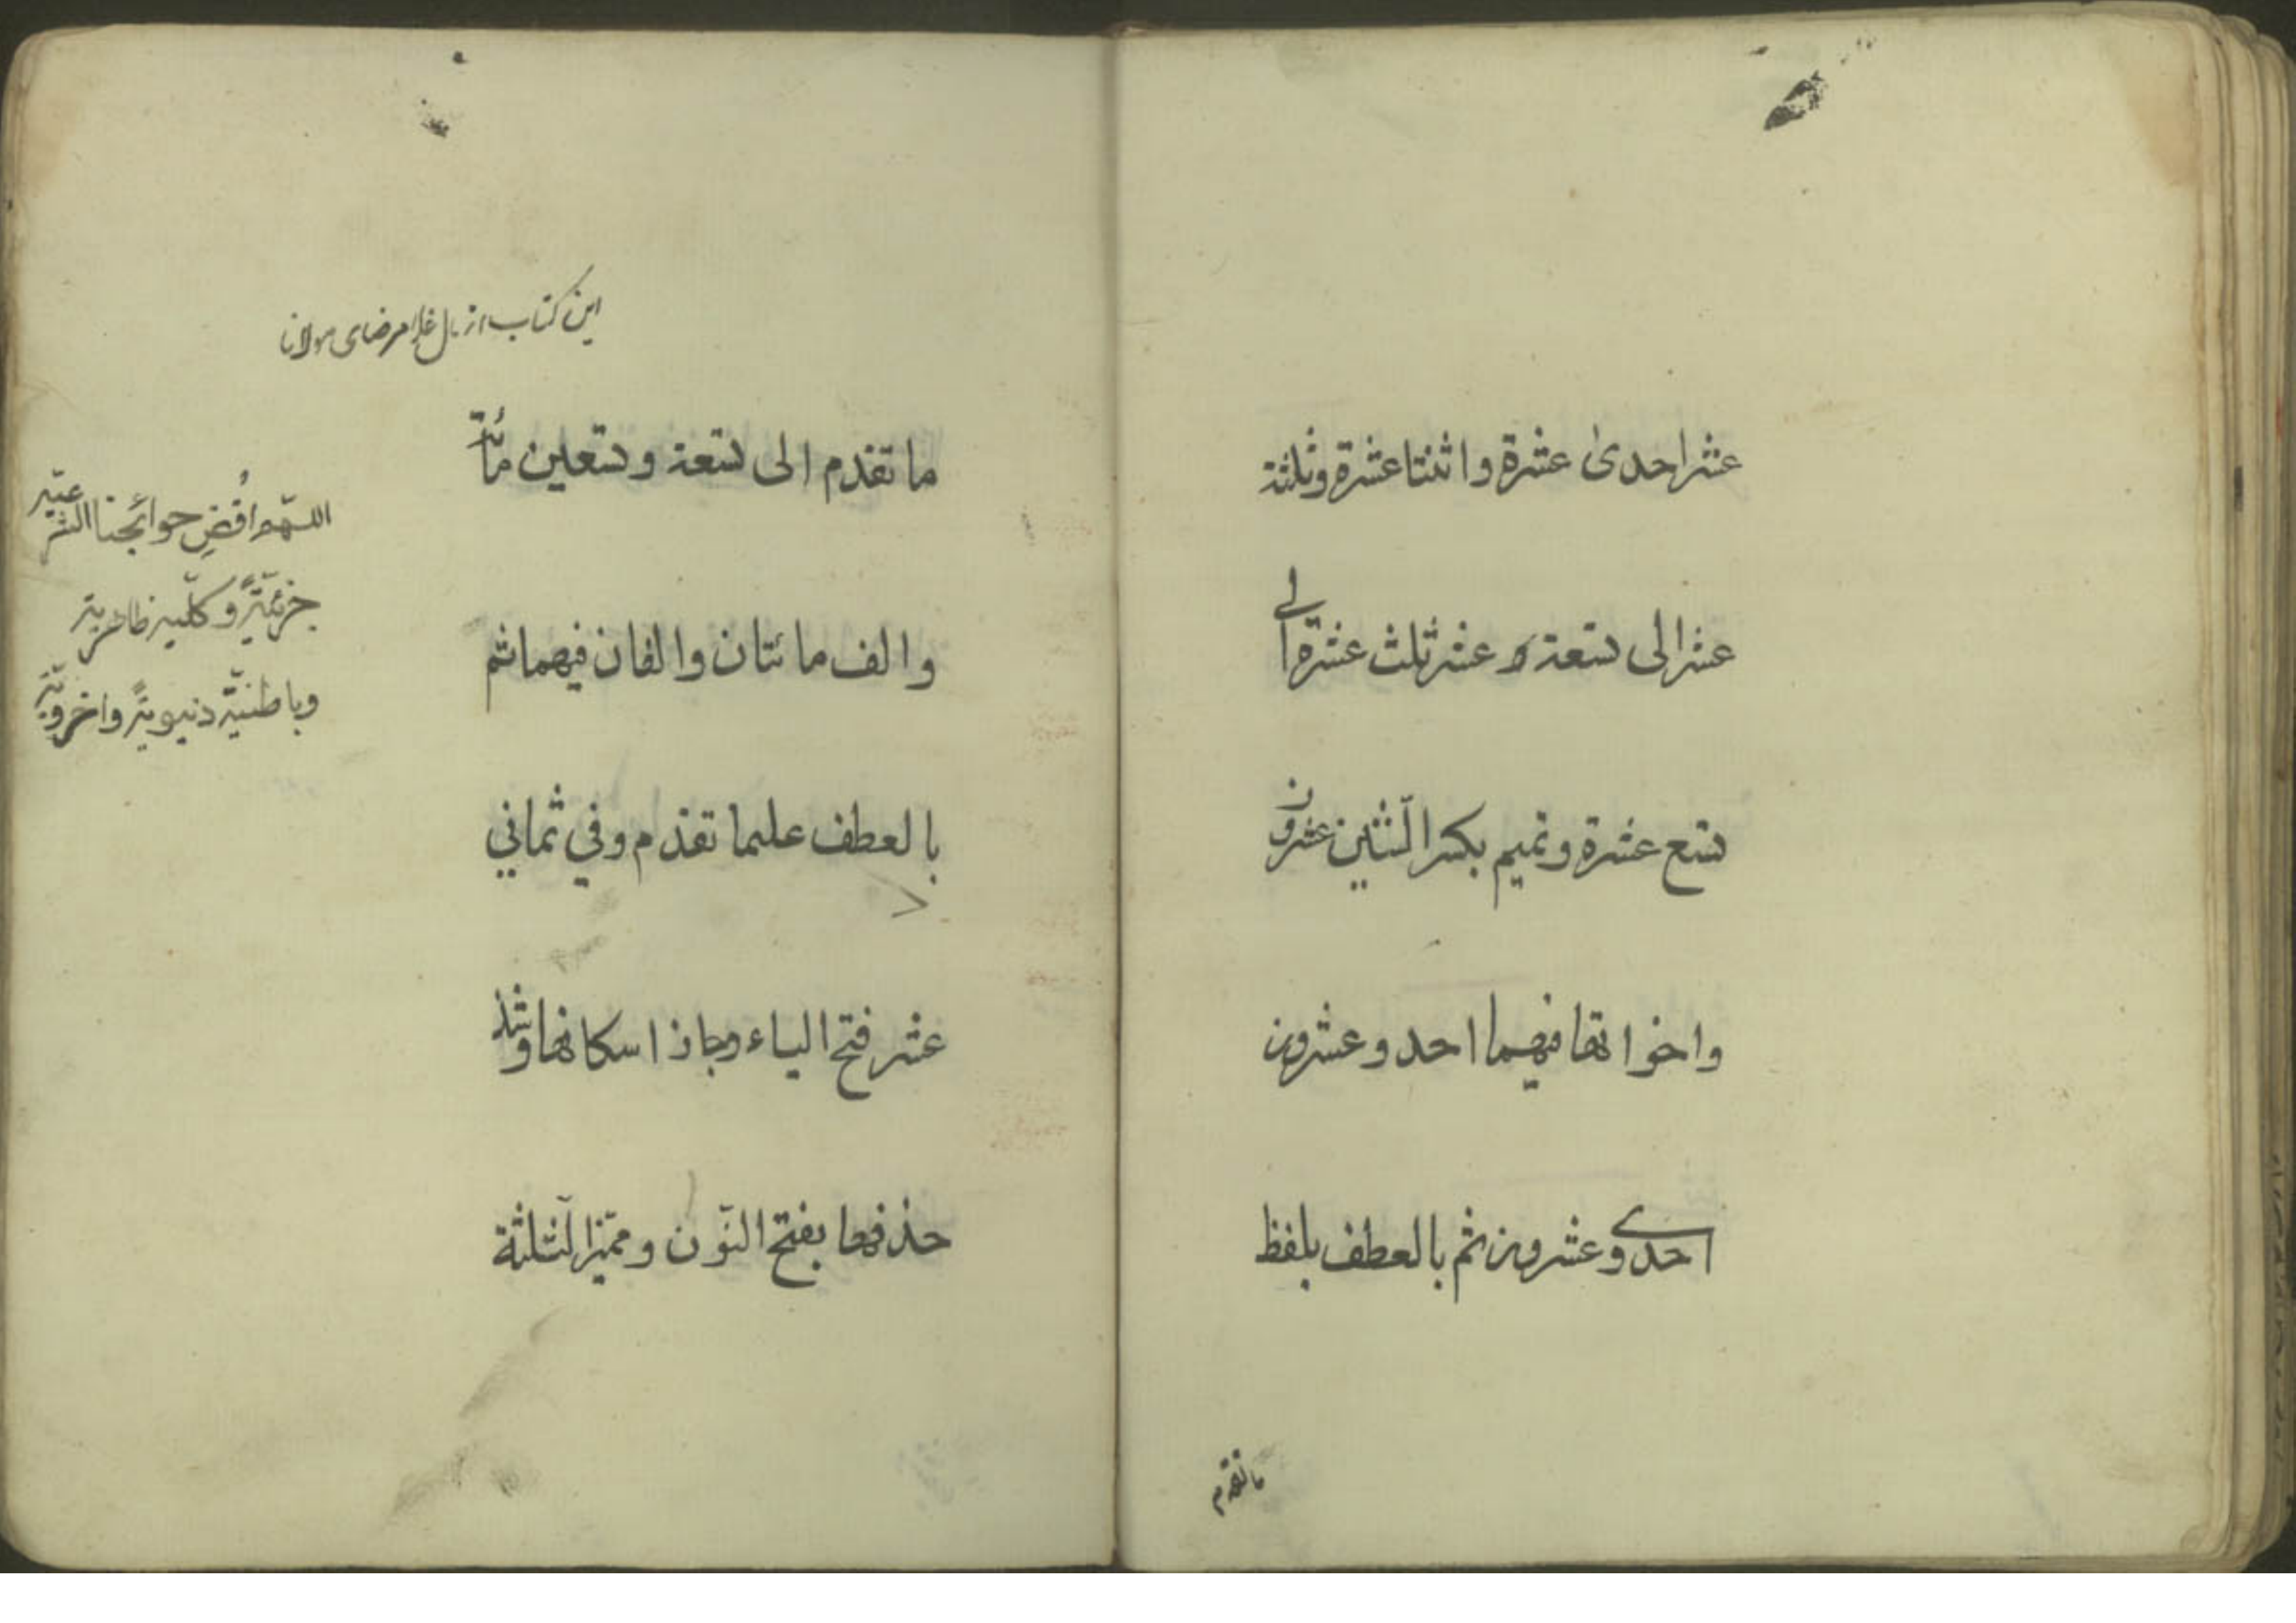 عشر احدى عشرة واثنتا عشرة وثلثة
عشر الى تسعة عشر ثلث عشرة الى
تسع عشرة وتميم بكسر الشين عشرون
واخواتها فيهما احد وعشرون
احدى وعشرون ثم بالعطف بلفظ
ما تقدم
اين كتاب از مال غلامرضاى مولانا
ما تقدم الى تسعة وتسعين مائة
والف مائتان والفان فيهما ثم
بالعطف على ما تقدم وفي ثماني
عشر فتح الياء وجاز اسكانها وشذ
حذفها بفتح النّون ومميّز الثلثة
اللهم اقُضِ حوائجنا الشرعيّة
جزئيّةً وكلّية ظاهرية
وباطنيّة دنيويةً واخرويّة